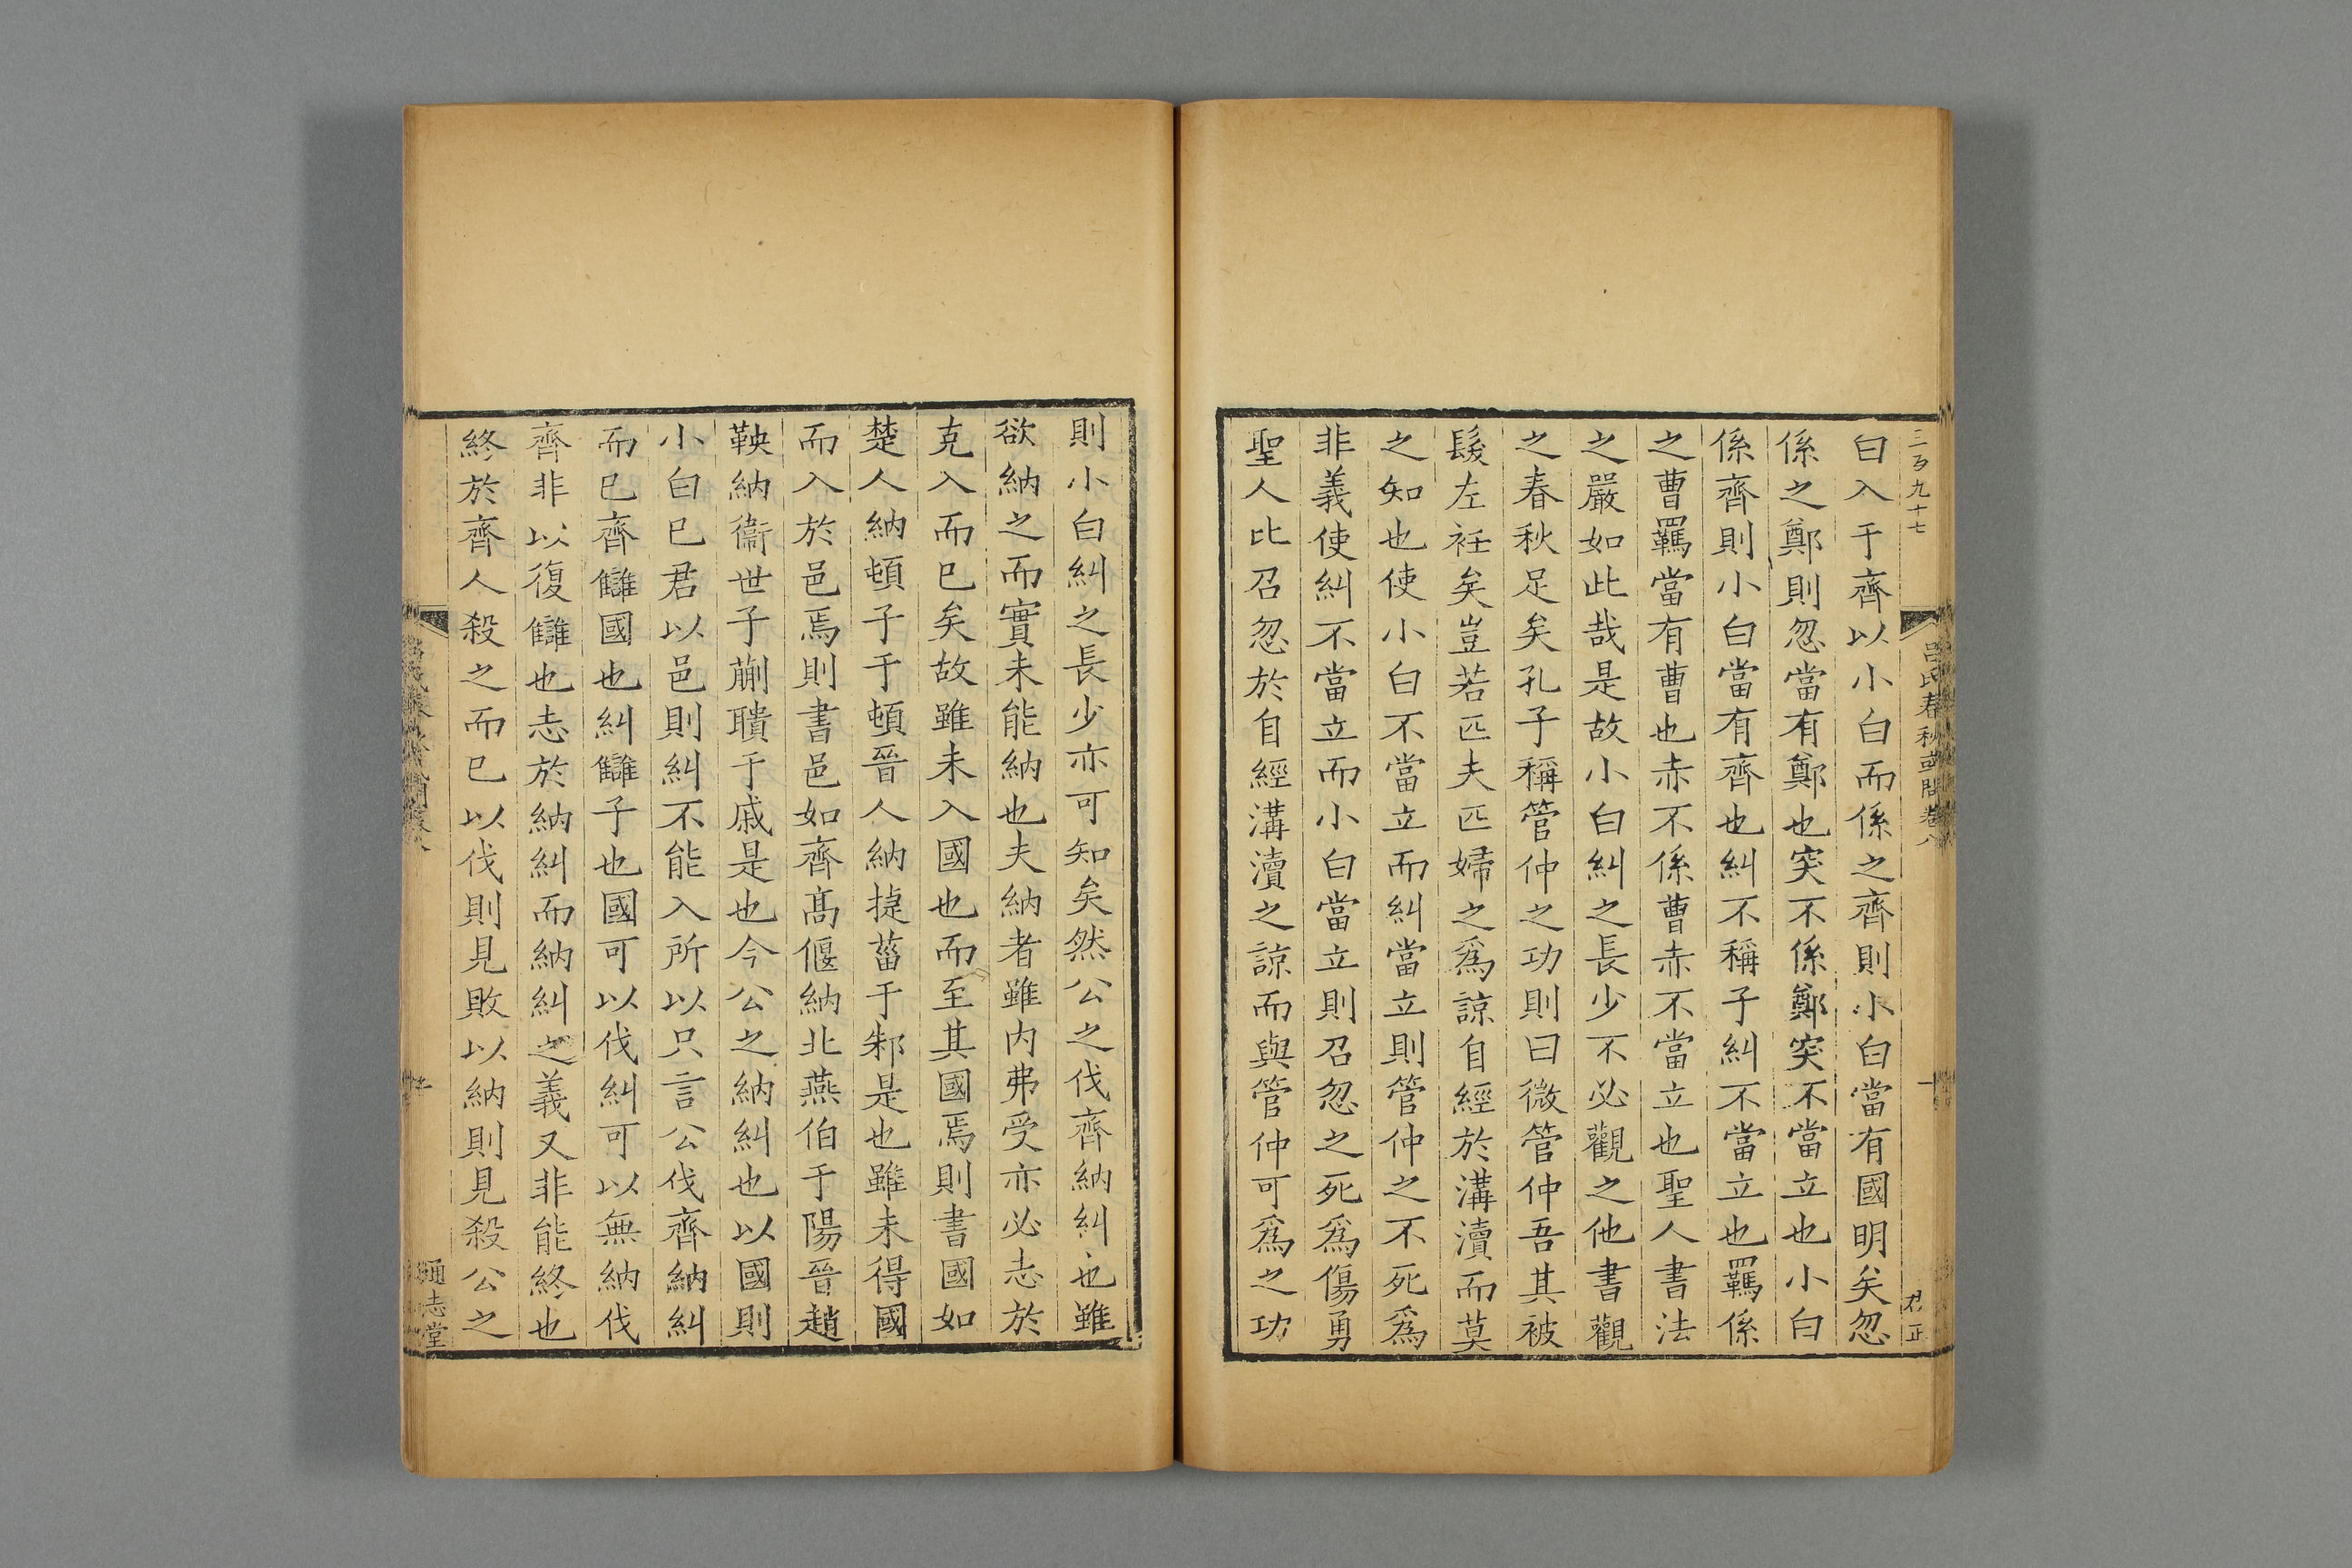 二百九十七
呂氏春秋或問卷八
十
君正
白入于齊以小白而係之齊則小白當有國明矣忽
係之鄭則忽當有鄭也突不係鄭突不當立也小白
係齊則小白當有齊也糾不稱子糾不當立也羈係
之曹羈當有曹也赤不係曹赤不當立也聖人書法
之嚴如此哉是故小白糾之長少不必觀之他書觀
之春秋足矣孔子稱管仲之功則曰微管仲吾其被
髮左衽矣豈若匹夫匹婦之爲諒自經於溝瀆而莫
之知也使小白不當立而糾當立則管仲之不死爲
非義使糾不當立而小白當立則召忽之死爲傷勇
聖人比召忽於自經溝瀆之諒而與管仲可爲之功
則小白糾之長少亦可知矣然公之伐齊納糾也雖
欲納之而實未能納也夫納者雖内弗受亦必志於
克入而已矣故雖未入國也而至其國焉則書國如
楚人納頓子于頓晉人納捷菑于邾是也雖未得國
而入於邑焉則書邑如齊高偃納北燕伯于陽晉趙
鞅納衛世子蒯聵于戚是也今公之納糾也以國則
小白已君以邑則糾不能入所以只言公伐齊納糾
而已齊讎國也糾讎子也國可以伐糾可以無納伐
齊非以復讎也志於納糾而納糾之義又非能終也
終於齊人殺之而已以伐則見敗以納則見殺公之
通志堂